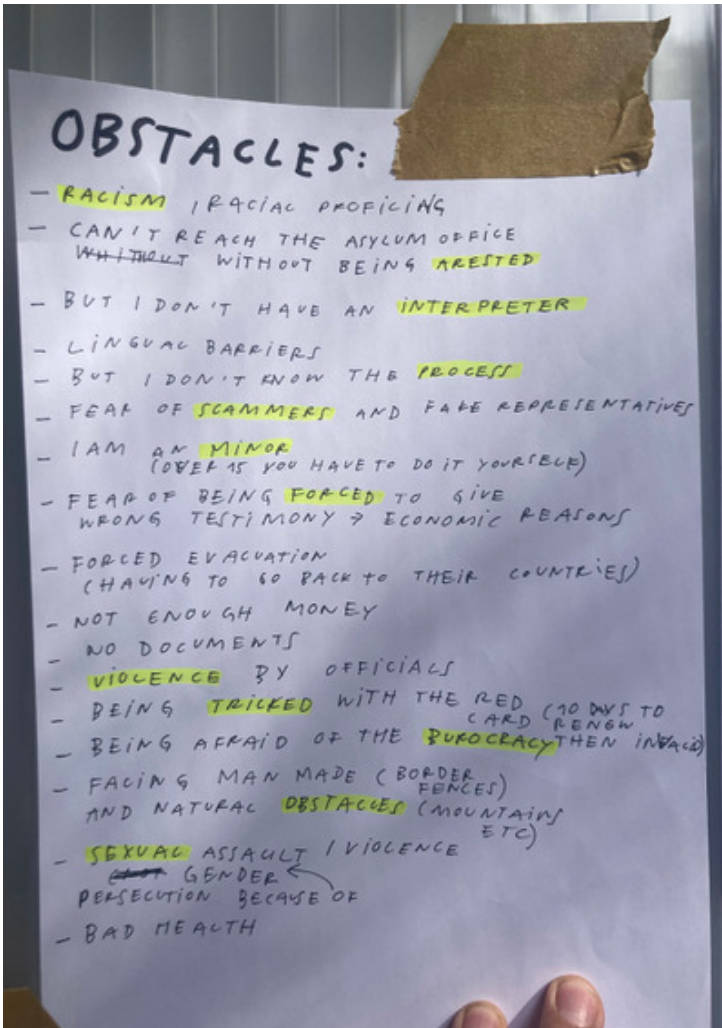 OBSTACLES:
- RACISM / RACIAL PROFICING
- CAN'T REACH THE ASYLUM OFFICE
WHITHOUT WITHOUT BEING ARESTED
- BUT I DON'T HAVE AN INTERPRETER
- LINGUAL BARRIERS
- BUT I DON'T KNOW THE PROCESS
- FEAR OF SCAMMERS AND FAKE REPRESENTATIVES
- I AM AN MINOR
(OVER 15 YOU HAVE TO DO IT YOURSELF)
- FEAR OF BEING FORCED TO GIVE
WRONG TESTIMONY → ECONOMIC REASONS
- FORCED EVACUATION
(HAVING TO GO BACK TO THEIR COUNTRIES)
- NOT ENOUGH MONEY
- NO DOCUMENTS
- VIOLENCE BY OFFICIALS
- BEING TRICKED WITH THE RED
CARD (10 DAYS TO
RENEW
- BEING AFRAID OF THE BUROCRACY THEN INVALID)
- FACING MAN MADE (BORDER
FENCES)
AND NATURAL OBSTACLES (MOUNTAINS
ETC)
- SEXUAL ASSAULT / VIOLENCE
GENDER
PERSECUTION BECAUSE OF
- BAD HEALTH